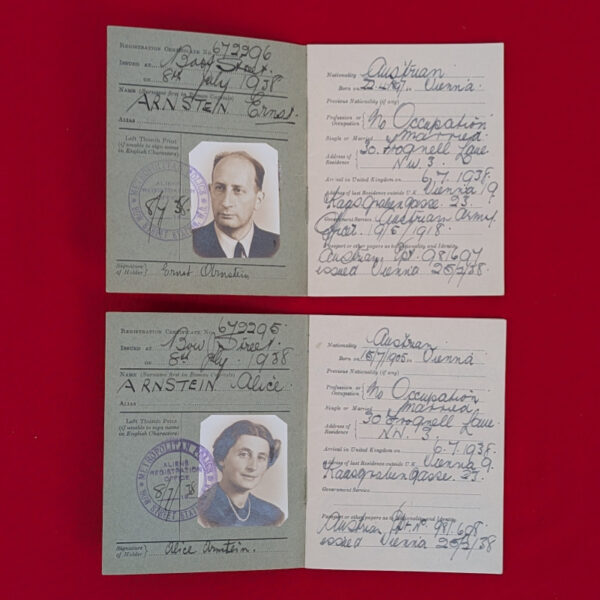 REGISTRATION CERTIFICATE No. 672296
ISSUED AT Bow Street
ON 8th July 1938
NAME (Surname first in Roman Capitals)
ARNSTEIN Ernst.
ALIAS
Left Thumb Print
(if unable to sign name
in English Characters)
METROPOLITAN POLICE
ALIENS
REGISTRATION
OFFICE
8/7/38
BOW STREET STATION
Signature of Holder } Ernst Arnstein
Nationality Austrian
Born on Vienna
Previous Nationality (if any)
Profession or Occupation } No Occupation
Single or Married Married
Address of Residence } 30. Frognell Lane
N.W. 3.
Arrival in United Kingdom on 6.7.1938.
Address of last Residence outside U.K. Vienna 9.
Kaasgrabengasse. 23.
Government Service Austrian Army
1918.
Passport or other papers as to Nationality and Identity.
Austrian Ppt. 981697
issued Vienna 25/2/38
REGISTRATION CERTIFICATE No. 672295
ISSUED AT Bow Street
ON 8th July 1938
NAME (Surname first in Roman Capitals)
ARNSTEIN Alice.
ALIAS
Left Thumb Print
(if unable to sign name
in English Characters)
METROPOLITAN POLICE
ALIENS
REGISTRATION
OFFICE
8/7/38
BOW STREET STATION
Signature of Holder } Alice Arnstein.
Nationality Austrian
Born on 15/7/1905 Vienna
Previous Nationality (if any)
Profession or Occupation } No Occupation
Single or Married Married
Address of Residence } 30 Frognell Lane
N.W. 3.
Arrival in United Kingdom on 6.7.1938.
Address of last Residence outside U.K. Vienna 9.
Kaasgrabengasse. 23.
Government Service
Passport or other papers as to Nationality and Identity.
Austrian Ppt. No. 981698
issued Vienna 25/2/38